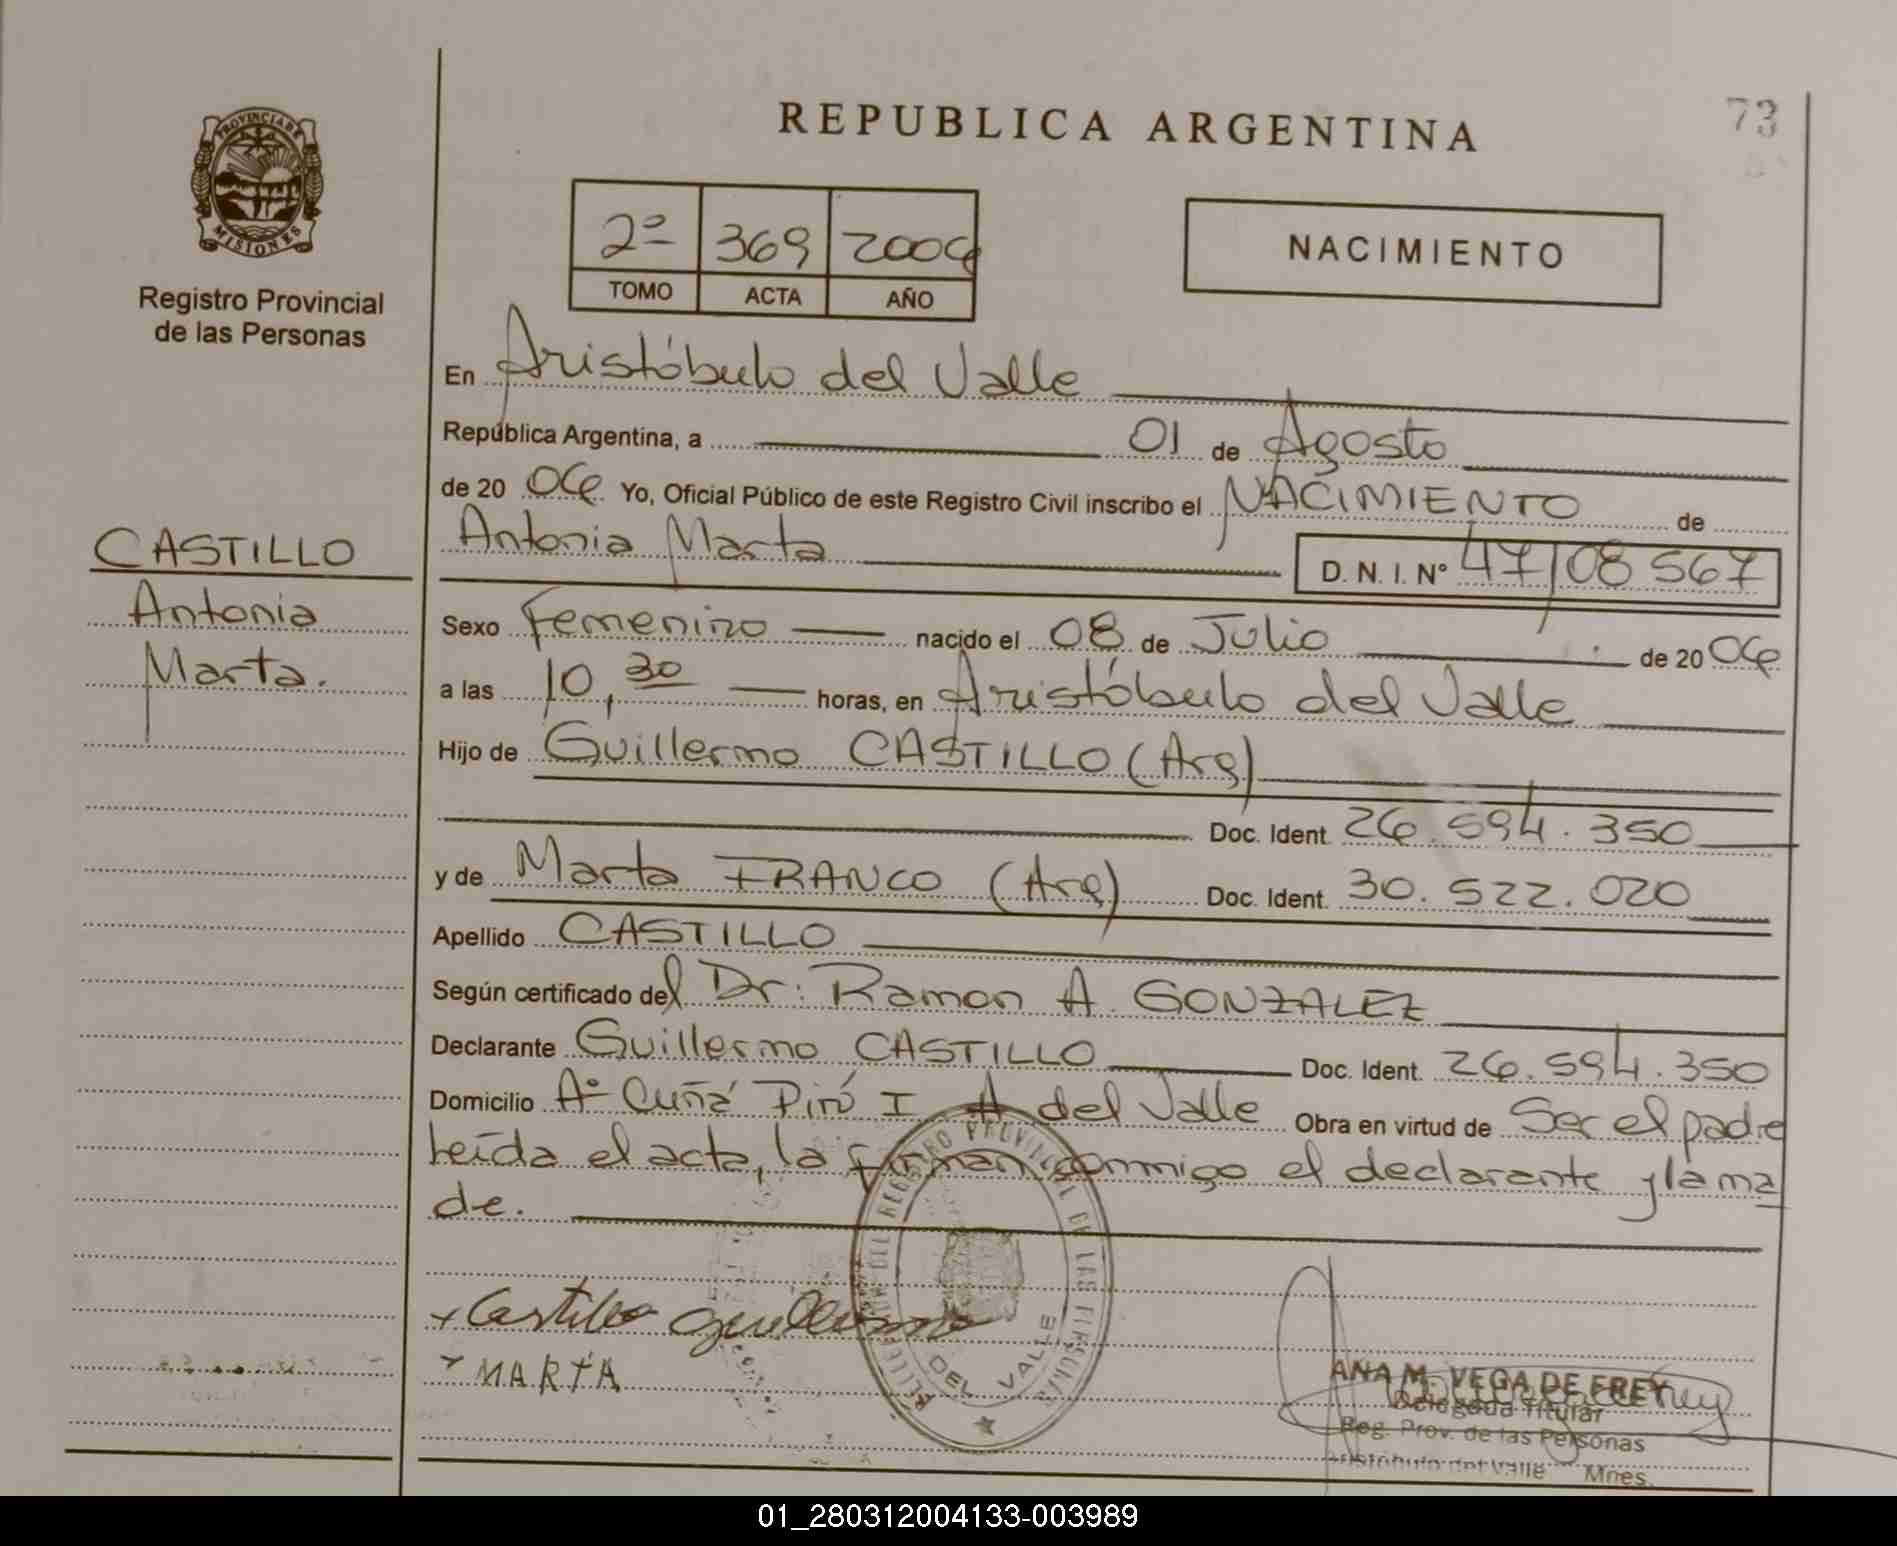 73
REPUBLICA ARGENTINA
PROVINCIA DE
MISIONES
Registro Provincial
de las Personas
2º 369 2006
TOMO ACTA AÑO
NACIMIENTO
En Aristóbulo del Valle
República Argentina, a 01 de Agosto
de 20 06 Yo, Oficial Público de este Registro Civil inscribo el NACIMIENTO de
Antonia Marta D. N. I. Nº 47108567
CASTILLO
Antonia
Marta.
Sexo Femenino nacido el 08 de Julio de 20 06
a las 10,30 horas, en Aristóbulo del Valle
Hijo de Guillermo CASTILLO (Arg)
Doc. Ident. 26.594.350
y de Marta FRANCO (Arg) Doc. Ident. 30.522.020
Apellido CASTILLO
Según certificado del Dr: Ramon A. GONZALEZ
Declarante Guillermo CASTILLO Doc. Ident. 26.594.350
Domicilio Aº Cuñá Pirú I A del Valle Obra en virtud de Ser el padre
Leída el acta, la firman conmigo el declarante y la ma
de.
Castillo Guillermo
MARTA
REGISTRO PROVINCIAL DE LAS PERSONAS
DEL VALLE
ANA M. VEGA DE FREY
Delegada Titular
Reg. Prov. de las Personas
Aristóbulo del Valle Mnes.
01_280312004133-003989